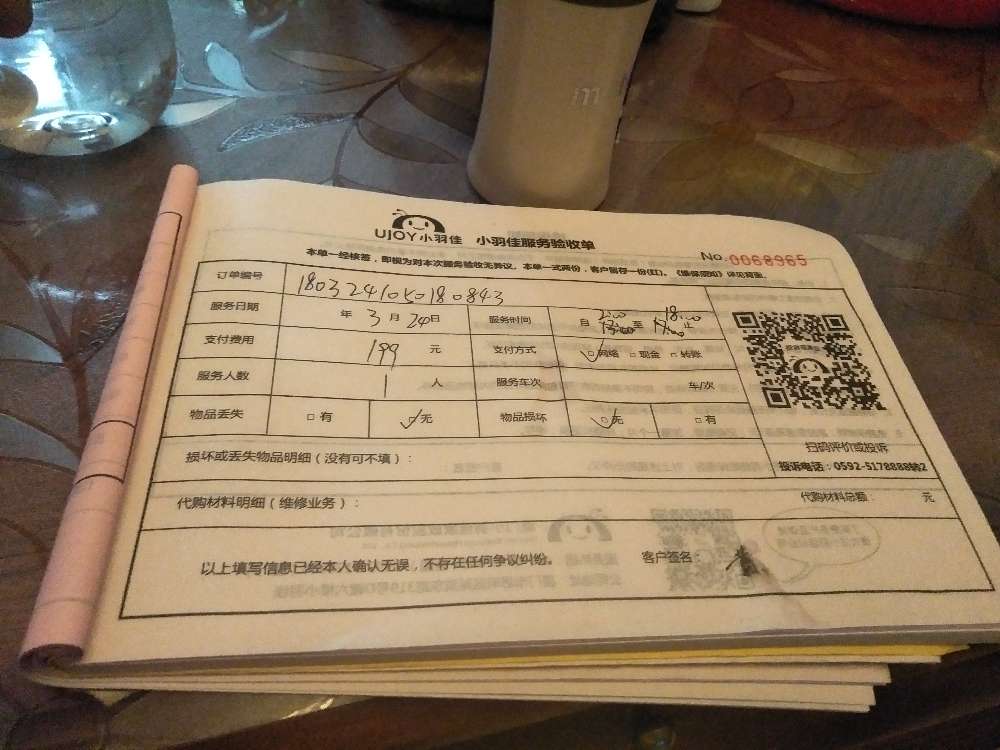 UJOY小羽佳 小羽佳服务验收单
No.0068965
本单一经核签，即视为对本次服务验收无异议。本单一式两份，客户留存一份(红)。《维保须知》详见背面。
订单编号 1803241050180843
服务日期 年 3 月 24 日 服务时间 自 至 18:00 止
支付费用 199 元 支付方式 ☑网络 □现金 □转账
服务人数 1 人 服务车次 车/次
物品丢失 □有 ☑无 物品损坏 ☑无 □有
扫码评价或投诉
损坏或丢失物品明细（没有可不填）：
投诉电话：0592-5178888转2
代购材料明细（维修业务）： 代购材料总额： 元
以上填写信息已经本人确认无误，不存在任何争议纠纷。 客户签名：